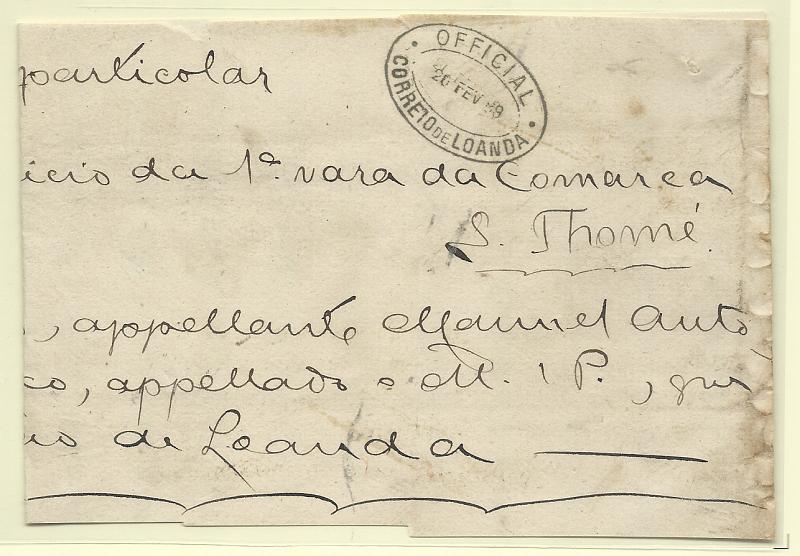 particolar
OFFICIAL
20 FEV 89
CORREIO DE LOANDA
icio da 1ª vara da Comarca
S. Thomé.
, appellante Manuel Anto
co, appellado o M. P., que
de Loanda